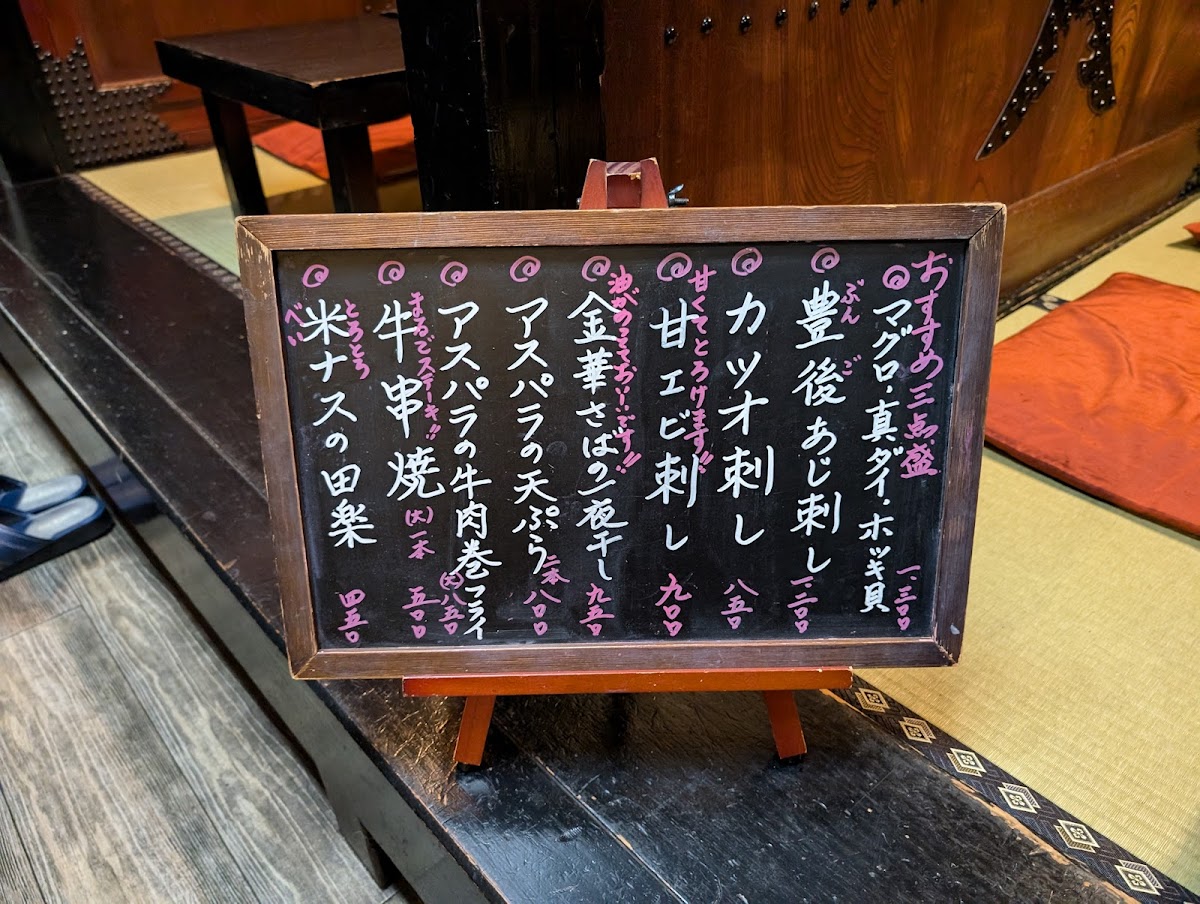 おすすめ三点盛
マグロ・真ダイ・ホッキ貝 一、三〇〇
ぶんご
豊後あじ刺し 一、二〇〇
カツオ刺し 八五〇
甘くてとろけます!!
甘エビ刺し 九〇〇
油がのっておいしいです!!
金華さばの一夜干し 九五〇
アスパラの天ぷら 二本 八〇〇
アスパラの牛肉巻フライ (大) 八五〇
まるでステーキ!!
牛串焼 (大)一本 五〇〇
とろとろ
べい
米ナスの田楽 四五〇